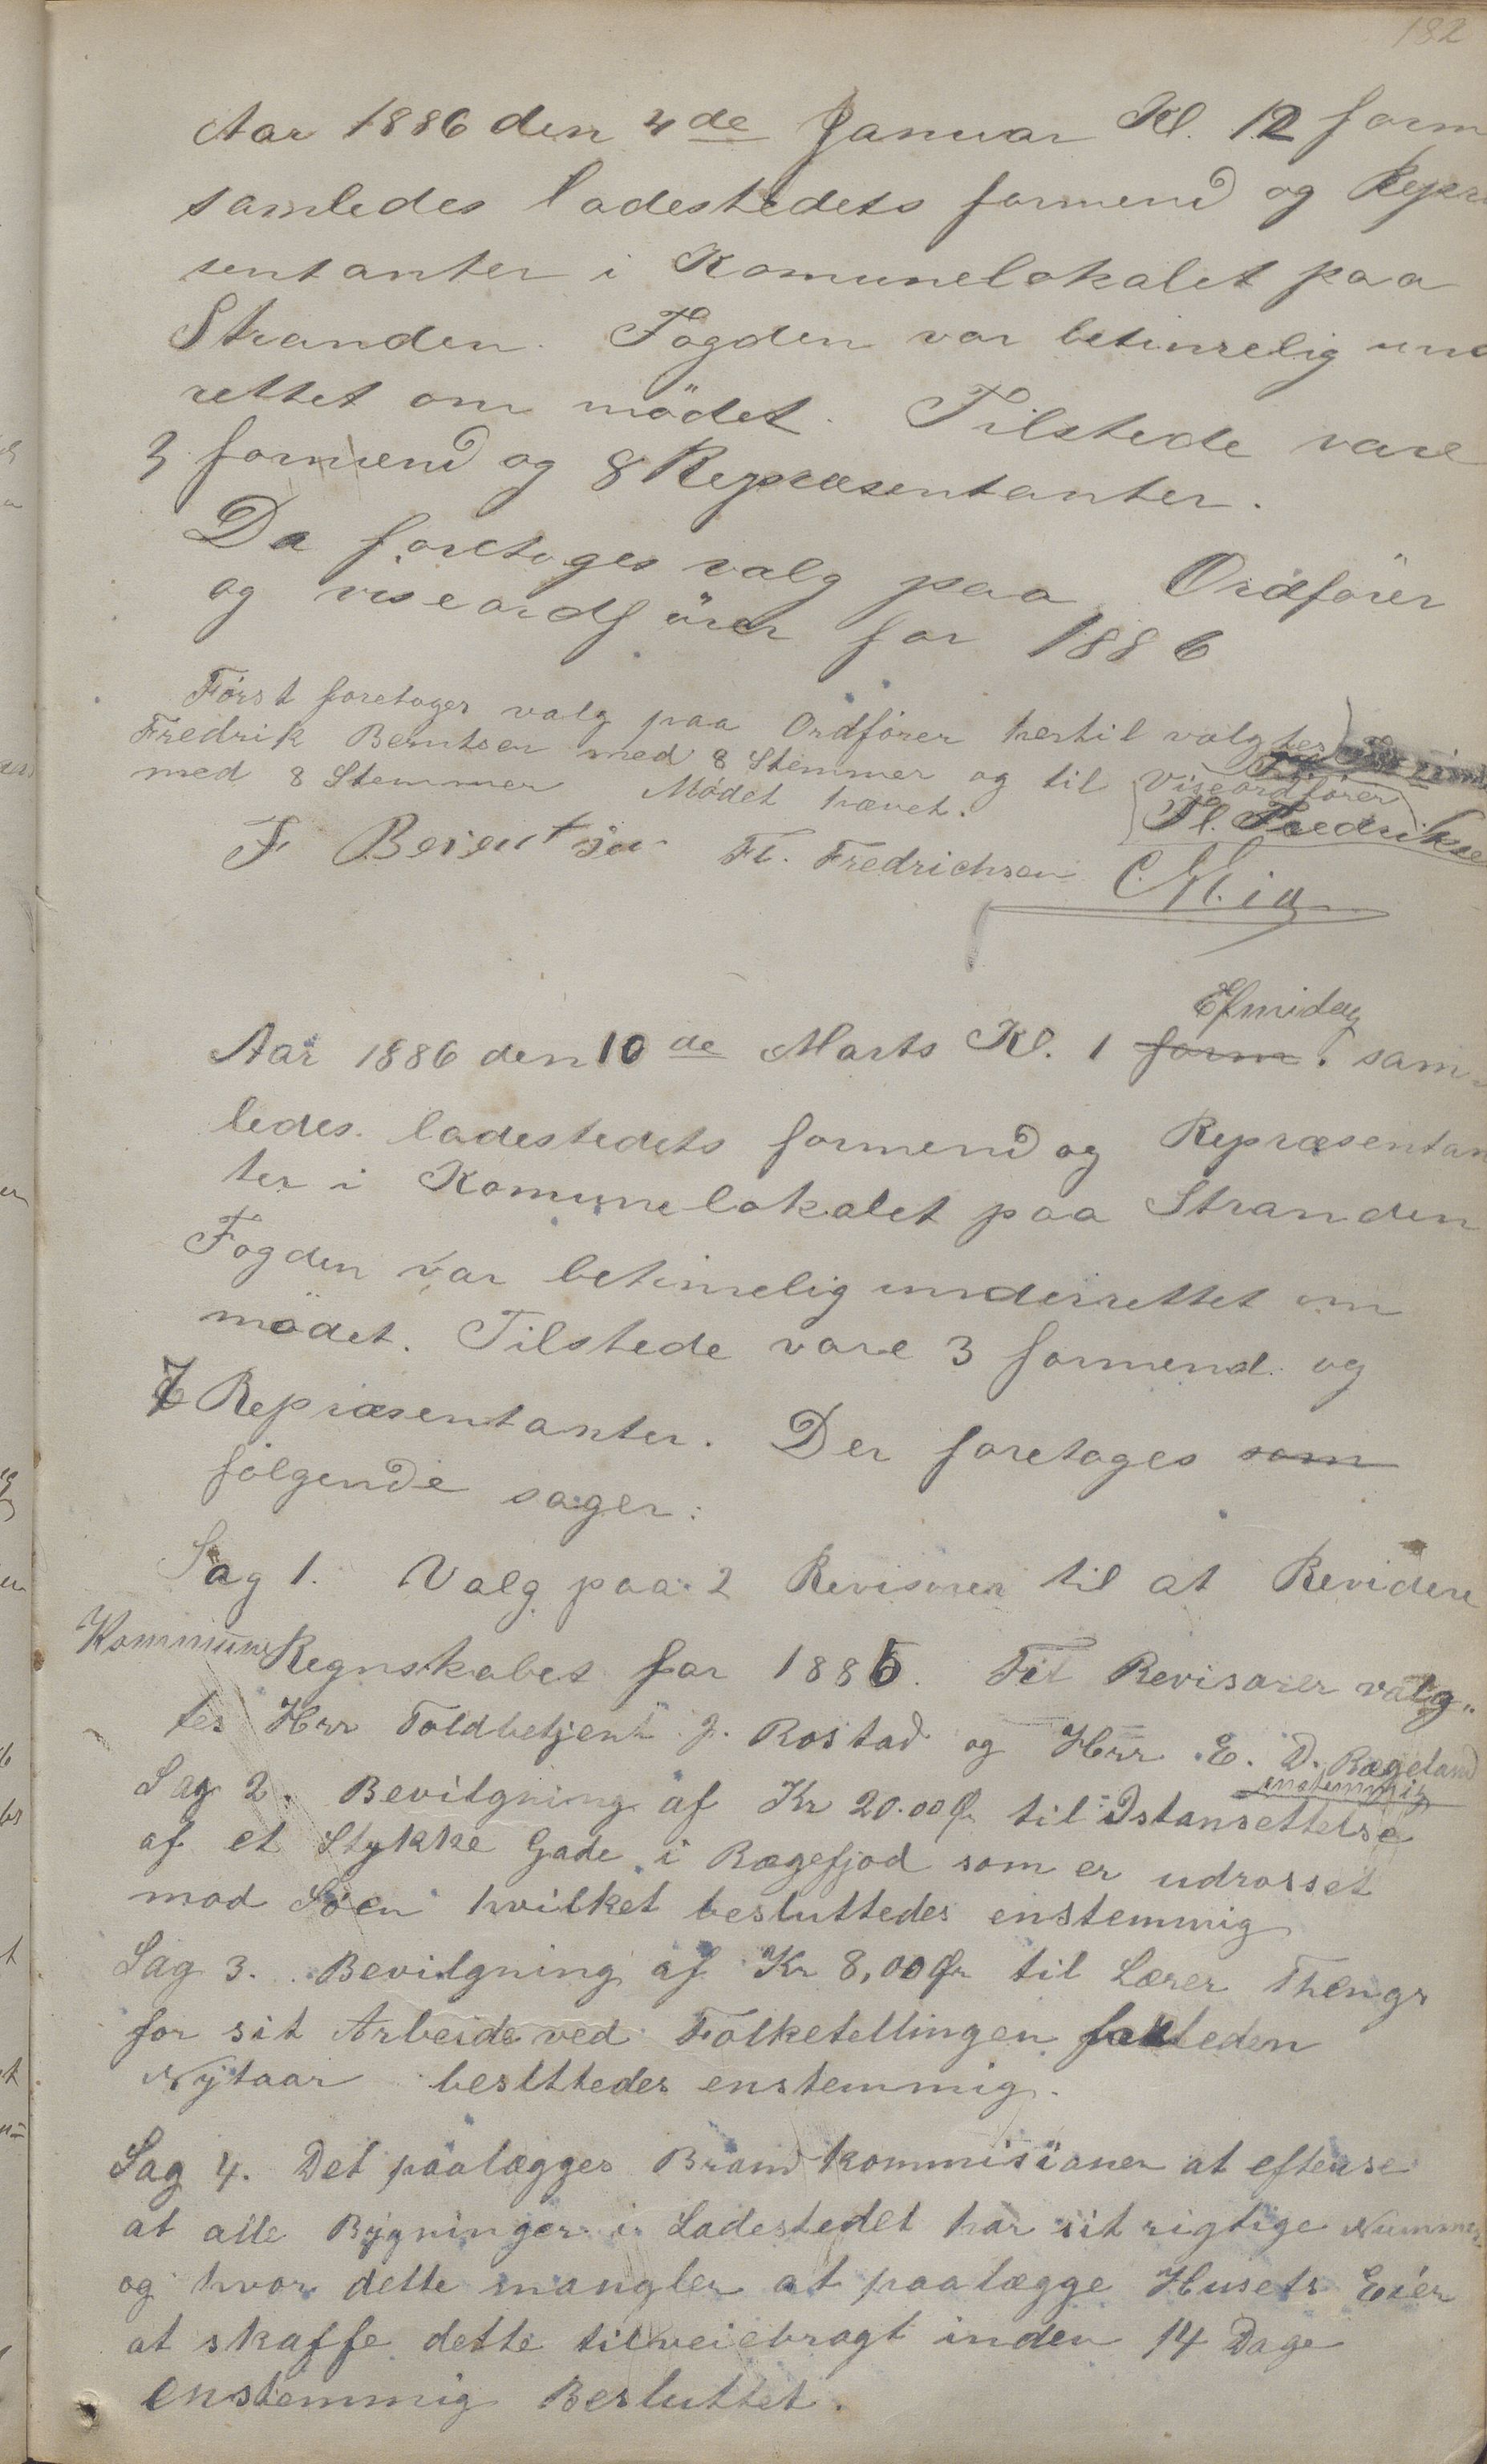 182
Aar 1886 den 4de Januar Kl. 12 form
samledes ladestedets formend og Repræ
sentanter i Komunelokalet paa
Stranden. Fogden var betimelig und
rettet om mödet. Tilstede vare
3 formend og 8 Repræsentanter.
Da foretoges valg paa Ordförer
og viseordförer for 1886
Først foretoges valg paa Ordfører hertil valgtes
Fredrik Berntsen med 8 Stemmer og til Viseordfører
Fl. Fredrikse
med 8 Stemmer Mødet hævet.
F Berentsen Fl. Fredrichsen
Efmidag
Aar 1886 den 10de Marts Kl. 1 form. sam-
ledes ladestedets formend og Repræsentan
ter i Komunelokalet paa Stranden
Fogden var betimelig underrettet om
mödet. Tilstede vare 3 formend og
7 Repræsentanter. Der foretoges som
følgende sager:
Sag 1. Valg paa 2 Revisorer til at Revidere
Kommune Regnskabet for 1885. Til Revisorer valg-
tes Hrr Toldbetjent J. Rostad og Hrr E. D. Rægeland
enstemmig
Sag 2. Bevilgning af Kr 20.00 Ør til Istansettelse
af et Stykke Gade i Rægefjod som er udrosset
mod Søen hvilket besluttedes enstemmig
Sag 3. Bevilgning af Kr 8,00 Ør til Lærer Thengs
for sit Arbeide ved Folketellingen forleden
Nytaar besluttedes enstemmig.
Sag 4. Det paalægges Brandkommisioner at efterse
at alle Bygninger i Ladestedet har sit rigtige Nummer
og hvor dette mangler at paalægge Husets Eier
at skaffe dette tilveiebragt inden 14 Dage
enstemmig Besluttet.